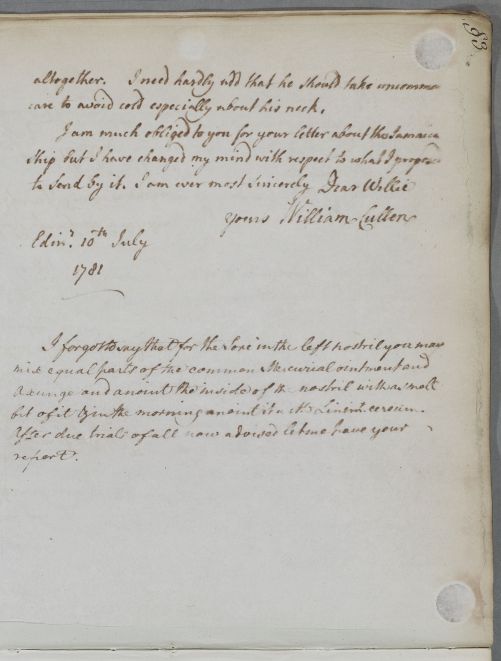 83.
altogether. I need hardly add that he should take uncommon
care to avoid cold especially about his neck.
I am much obliged to you for your letter about the Jamaica
Ship but I have changed my mind with respect to what I propos
to send by it. I am ever most sincerely Dear Willie
yours William Cullen
Edinr. 10th July
1781
I forgot to say that for the Sore in the left nostril you may
mix equal parts of the common Mercurial ointment and
Axunge and anoint the inside of the nostril with a small
bit of it & in the morning anoint it with Linimt. cereum.
After due trial of all now advised let me have your
report.